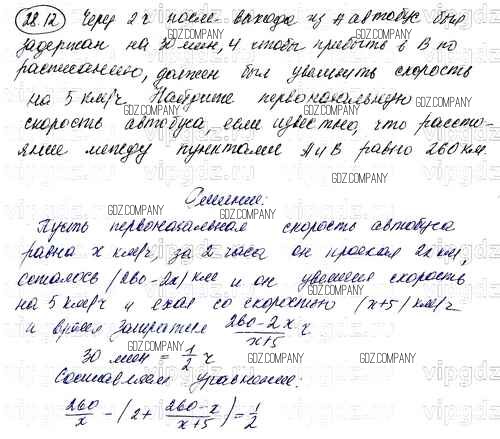 28.12 Через 2 ч после выхода из А автобус был
задержан на 30 мин, и чтобы прибыть в В по
расписанию, должен был увеличить скорость
на 5 км/ч. Найдите первоначальную
скорость автобуса, если известно, что рассто-
яние между пунктами А и В равно 260 км.
Решение:
Пусть первоначальная скорость автобуса
равна x км/ч, за 2 часа он проехал 2x км,
осталось (260-2x) км и он увеличил скорость
на 5 км/ч и ехал со скоростью (x+5) км/ч
и время затратил 260-2x/x+5 ч
30 мин = 1/2 ч
Составляем уравнение:
260/x - (2 + 260-x/x+5) = 1/2
GDZ.COMPANY
vipgdz.ru